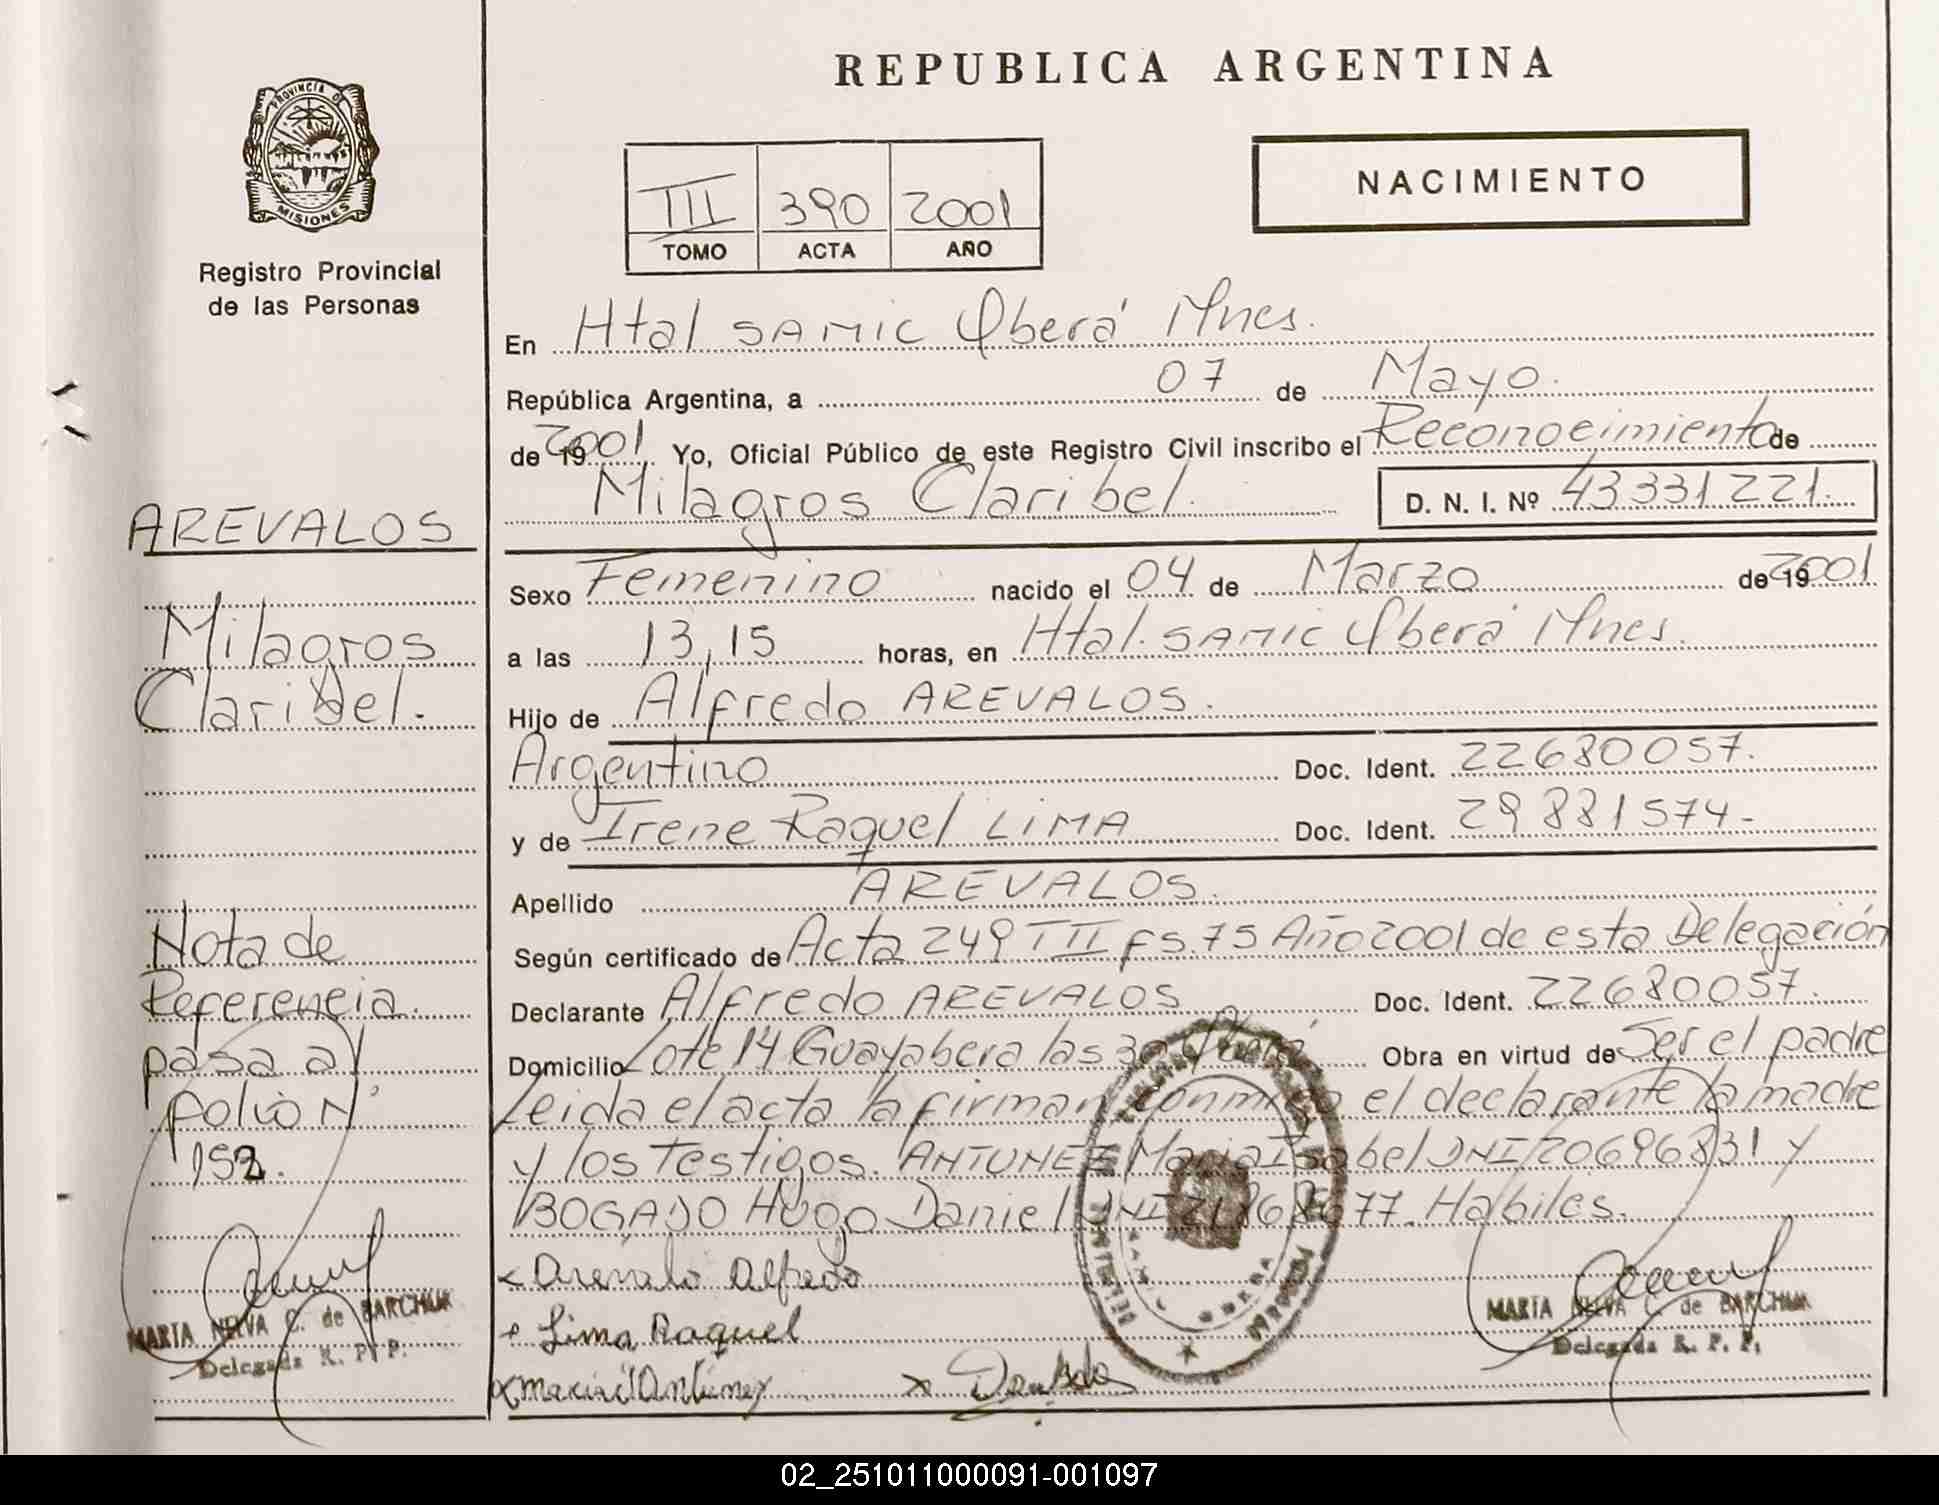 PROVINCIA DE
MISIONES
Registro Provincial
de las Personas
AREVALOS
Milagros
Claribel.
Nota de
Referencia
pasa al
folio Nº
192.
MARIA NELVA C. de BARCHUK
Delegada R. P. P.
REPUBLICA ARGENTINA
III 390 2001
TOMO ACTA AÑO
NACIMIENTO
En Htal SAMIC Oberá Mnes.
República Argentina, a 07 de Mayo.
de 19 2001 Yo, Oficial Público de este Registro Civil inscribo el Reconocimiento de
Milagros Claribel. D. N. I. Nº 43331221.
Sexo Femenino nacido el 04 de Marzo de 19 2001
a las 13,15 horas, en Htal. SAMIC Oberá Mnes.
Hijo de Alfredo AREVALOS.
Argentino Doc. Ident. 22680057.
y de Irene Raquel LIMA Doc. Ident. 29881574-
Apellido AREVALOS.
Según certificado de Acta 249 TII fs. 75 Año 2001 de esta Delegación
Declarante Alfredo AREVALOS Doc. Ident. 22680057.
Domicilio Lote 14 Guayabera las 30 Oberá, Obra en virtud de Ser el padre
Leida el acta la firman conmigo el declarante la madre
y los testigos. ANTUNEZ Maria Isabel DNI 20696831 y
BOGADO Hugo Daniel DNI 677. Habiles.
x Arevalo Alfredo
Lima Raquel
x Antunez x
MARIA NELVA C. de BARCHUK
Delegada R. P. P.
02_251011000091-001097